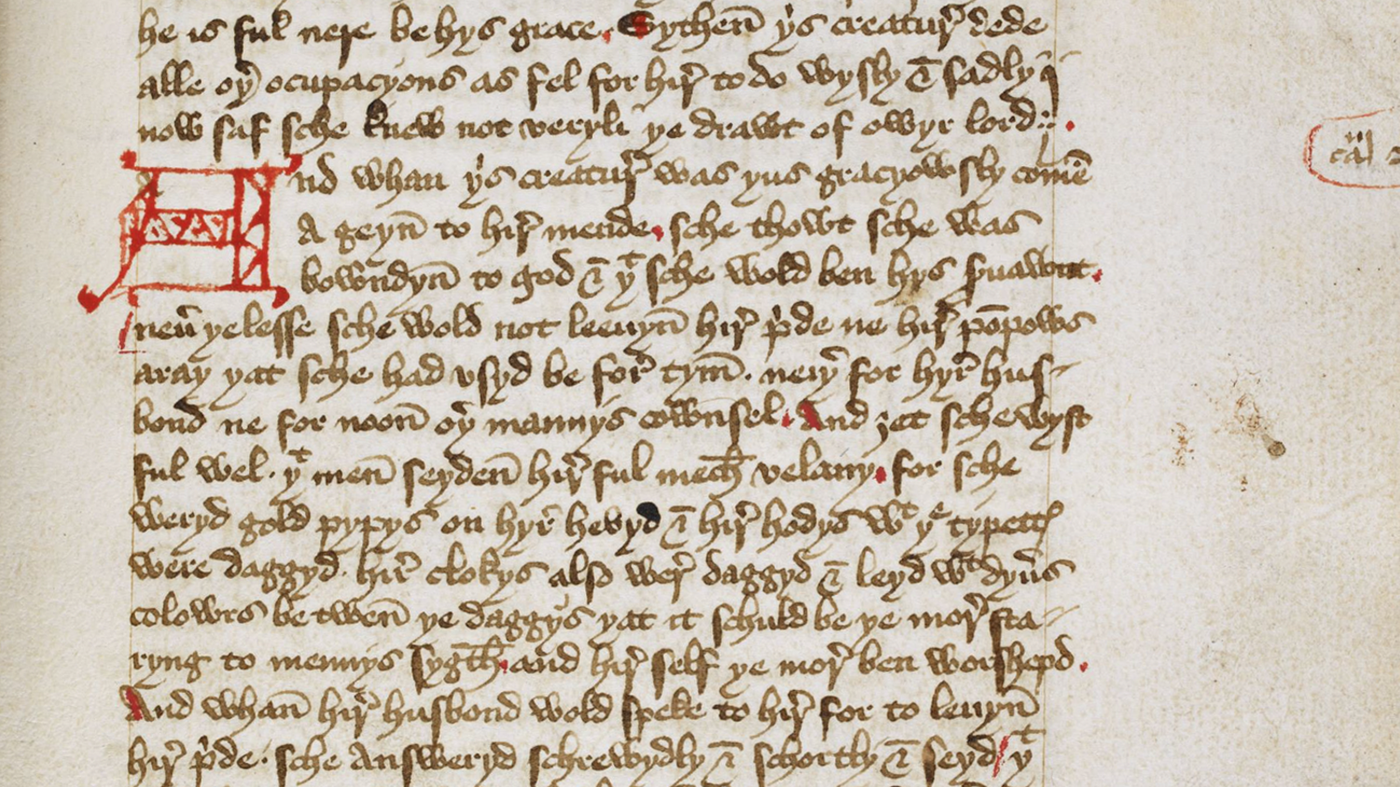 he is ful nere be hys grace. Sythen̄ ys creatur̛ dede
alle oyͬ ocupacyons as fel for hir̛ to do wysly & sadly j
now saf sche knew not veryli ye drawt of owyr lord:.
And whan ys creatur̛ was yus gracyowsly comē
A geyn̄ to hir̛ mende. sche thowt sche was
bowndyn̄ to god & yᵗ sche wold ben hys s̛uawnt.
neư yelesse sche wold not leeuyn̄ hir̛ pͥde ne hir̛ pōpows
aray yat sche had vsyd be for̛ tym̄. neiy̛ for hyr̛ hus-
bond ne for noon̄ oy̛ mannys cownsel. And ȝet sche wyst
ful wel. yᵗ men̄ seyden̄ hir̛ ful mech̄ velany. for sche
weryd gold pypys on hyr̛ hevyd & hir̛ hodys wᵗ yᵉ typettꝭ
were daggyd. hir̛ clokys also wer̛ daggyd & leyd wᵗ dyưs
colowrs be twen̄ ye daggys yat it schuld be ye mor̛ sta-
ryng to mennys sygth̄. and hir̛ self ye mor̛ ben worshepd.
And whan̄ hir̛ husbond wold speke to hir̛ for to leuyn̄
hir̛ pͥde. sche answeryd schrewydly & schortly & seyd / yᵗ